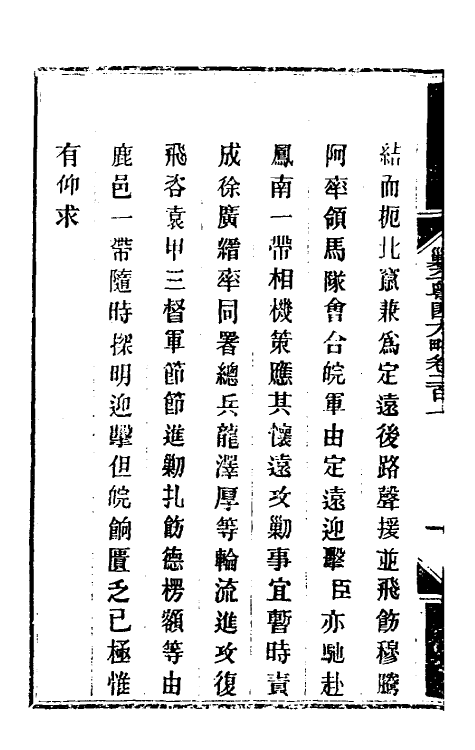 結而扼北竄兼爲定遠後路聲援並飛飭穆騰
阿率領馬隊會合皖軍由定遠迎擊臣亦馳赴
鳳南一帶相機策應其懷遠攻勦事宜暫時責
成徐廣縉率同署總兵龍澤厚等輪流進攻復
飛咨袁甲三督軍節節進勦扎飭德楞額等由
鹿邑一帶隨時探明迎擊但皖餉匱乏已極惟
有仰求